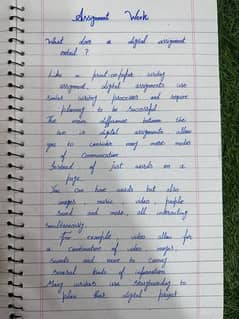 Assignment Work
What does a digital assignment
entail ?
Like a print-on-paper writing
assignment, digital assignments use
similar writing processes and require
planning to be successful.
The main difference between the
two is digital assignments allow
you to consider many more modes
of Communication
Instead of just words on a
page.
You can have words but also
images, music, video, people
sound and more, all interacting
simultaneously.
For example, video allow for
a Combination of video, images,
sounds and more to Convey
several kinds of information.
Many writers use storyboarding to
plan their digital project